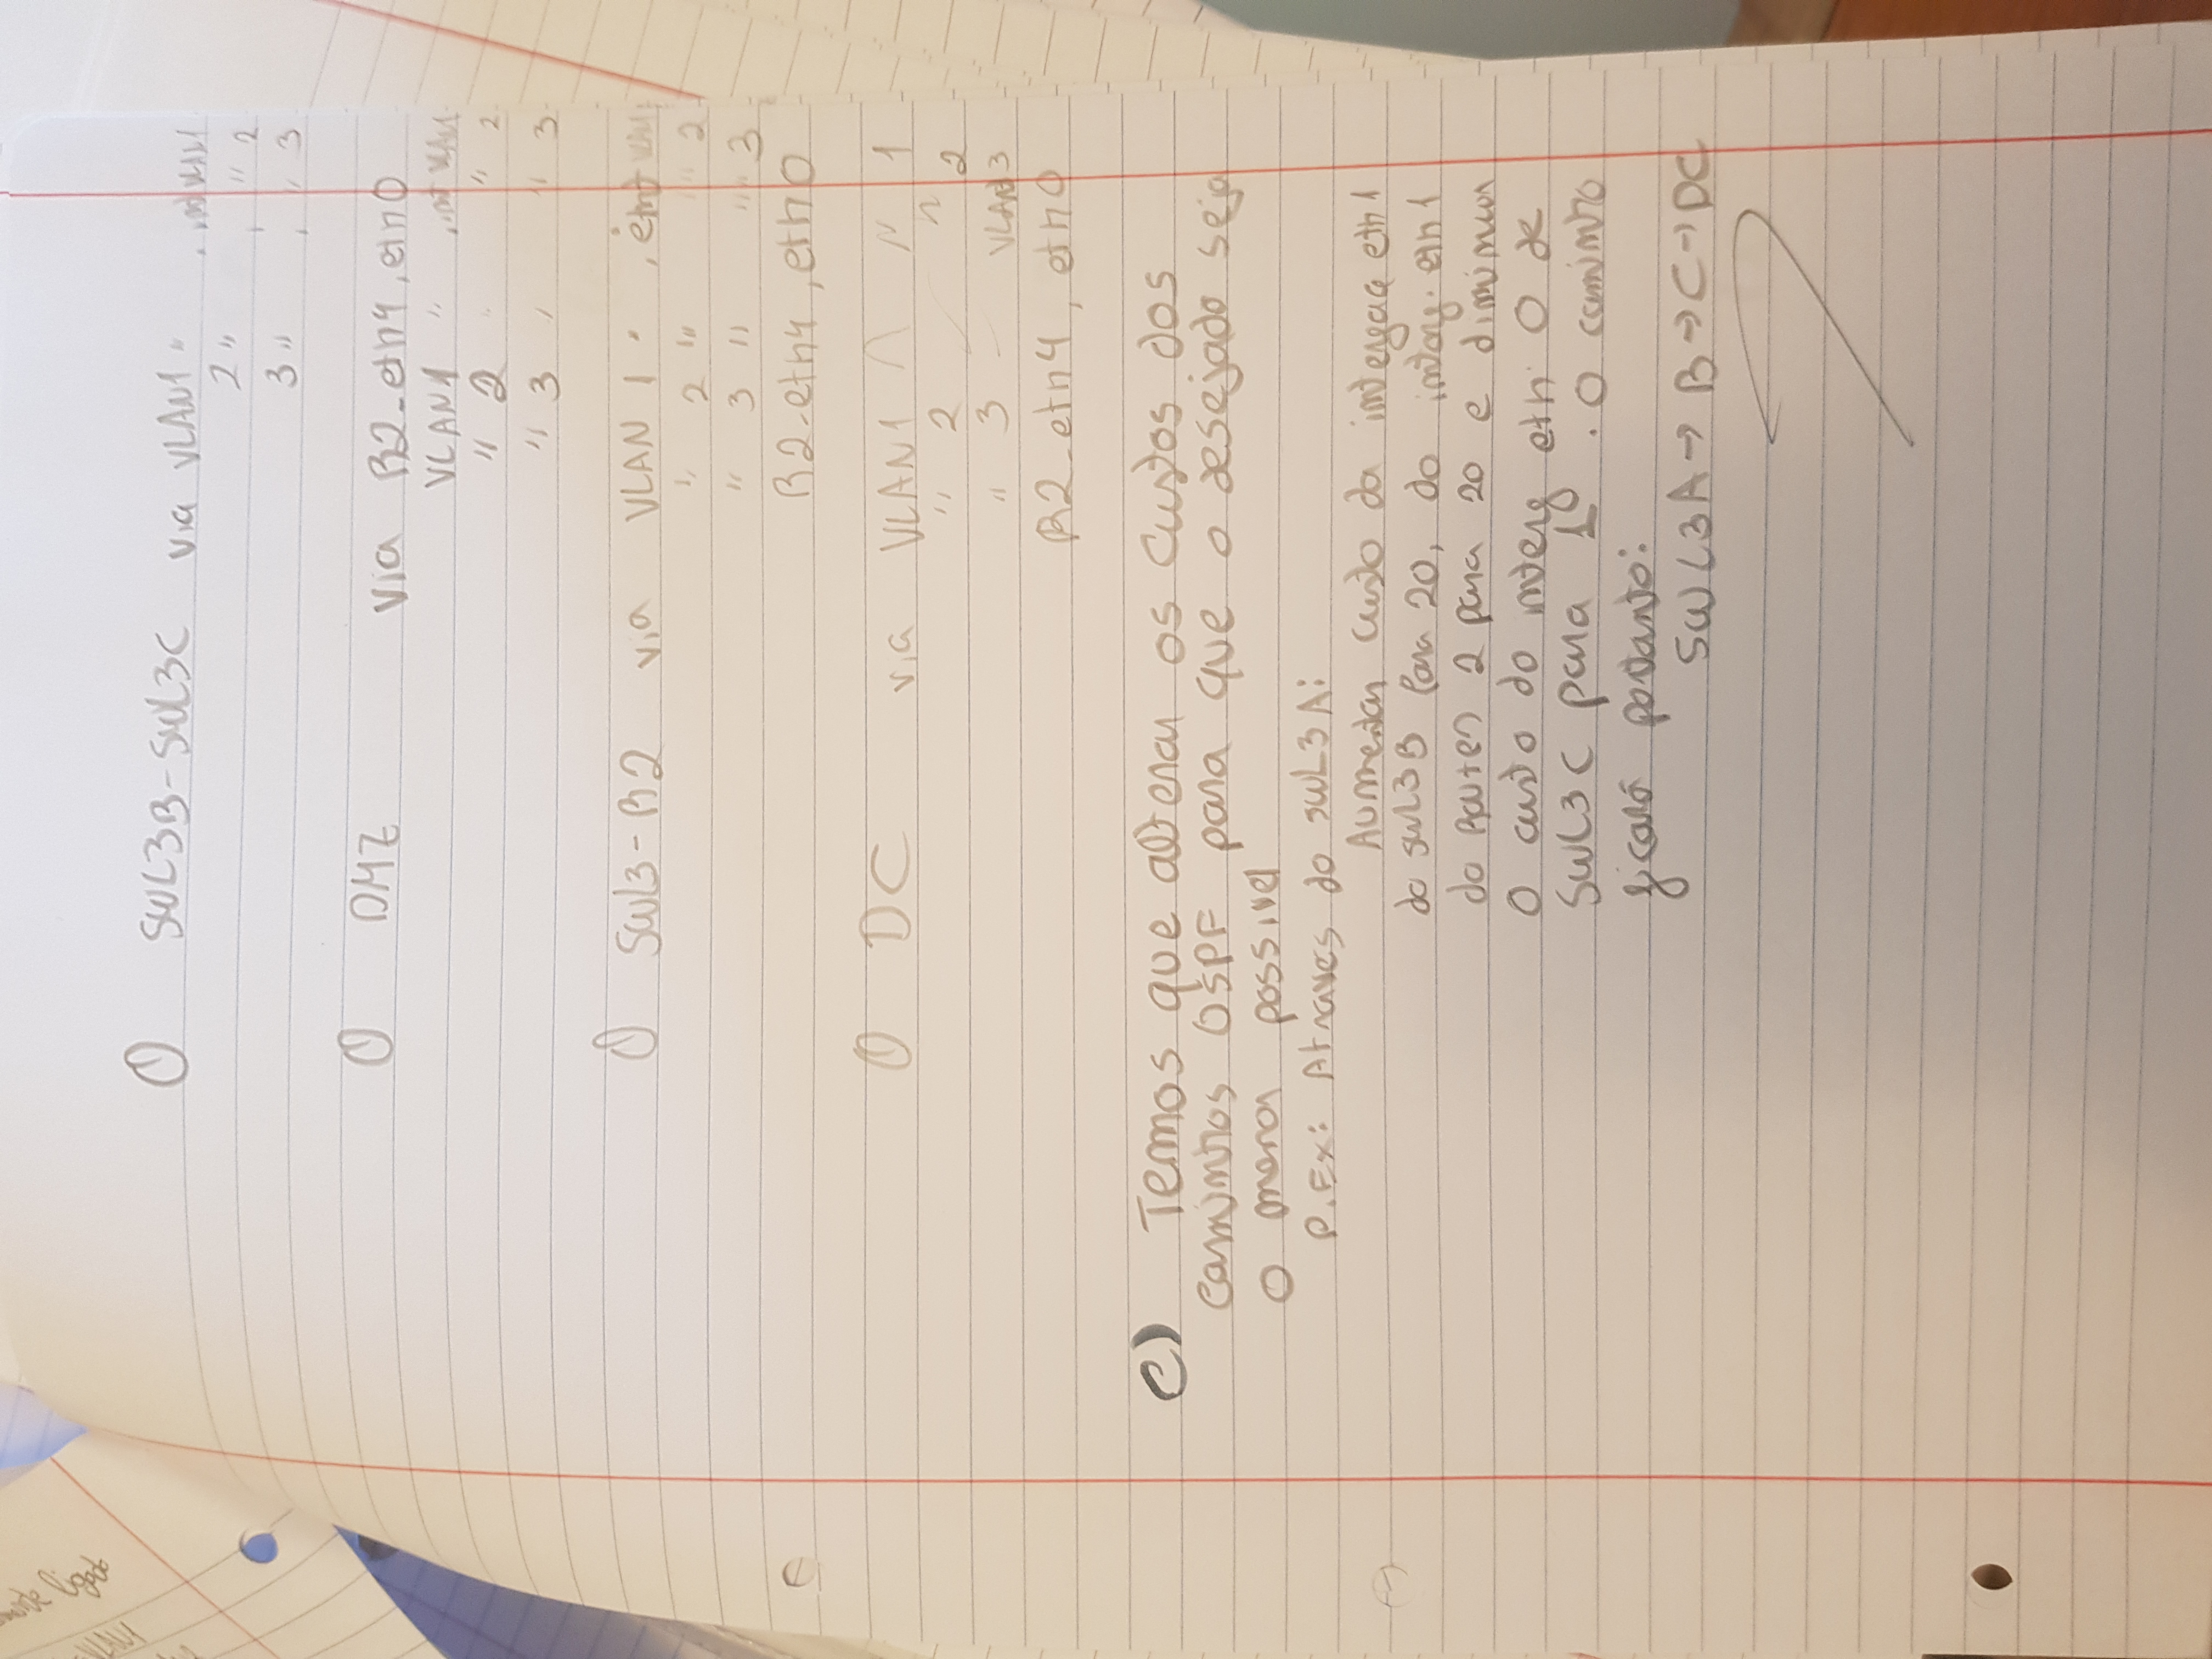 ligado
VLAN1
O SWL3B-SWL3C via VLAN1 " , int VLAN1
2 " , " 2
3 " , " 3
O DMZ via R2-eth4, eth0
VLAN1 " , int VLAN1
" 2 " " 2
" 3 " " 3
O SWL3-R2 via VLAN 1 " , int VLAN1
" 2 " " 2
" 3 " " 3
R2-eth4, eth0
O DC via VLAN1 " 1
" 2 " 2
" 3 VLAN3
R2-eth4, eth0
c) Temos que alterar os custos dos
caminhos OSPF para que o desejado seja
o menor possivel
P.Ex: Atraves do SWL3A:
Aumentar custo da interface eth1
do SWL3B para 20, do interf. eth1
do Router 2 para 20 e diminuir
o custo do interf eth 0 de
SWL3C para 1 . O caminho
ficará portanto:
SWL3A → B → C → DC